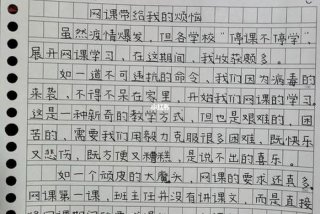 网课带给我的烦恼
虽然疫情爆发，但各学校“停课不停学”，
展开网课学习，在这期间，我收获颇多。
如一道不可违抗的命令，我们因为病毒的
来袭，不得不呆在家里，开始我们网课的学习。
这是一种新奇的教学方式，但也是艰难的，困
苦的，需要我们用毅力克服很多困难，既快乐
又悲伤，既方便又糟糕，是说不出的喜乐。
如一个顽皮的大魔头，网课的要求还真多。
网课第一课，班主任并没有讲课文，而是直接